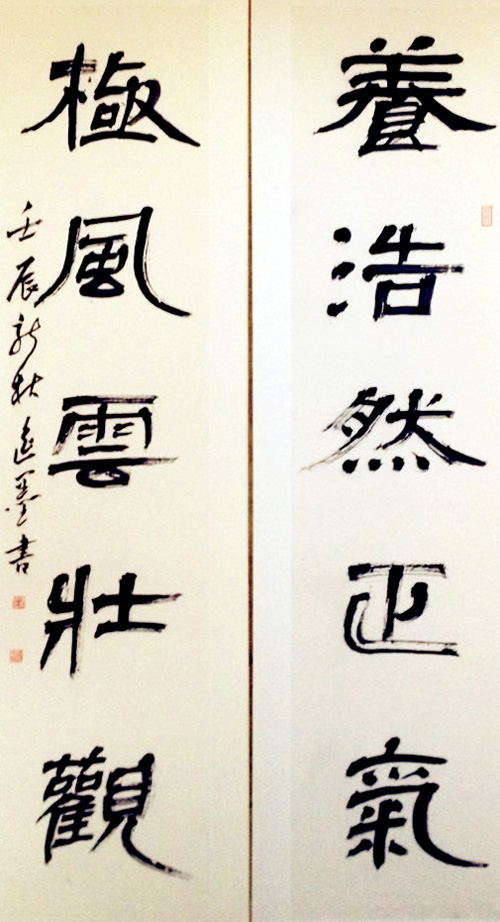 養浩然正氣
極風雲壯觀
壬辰新秋逸墨書